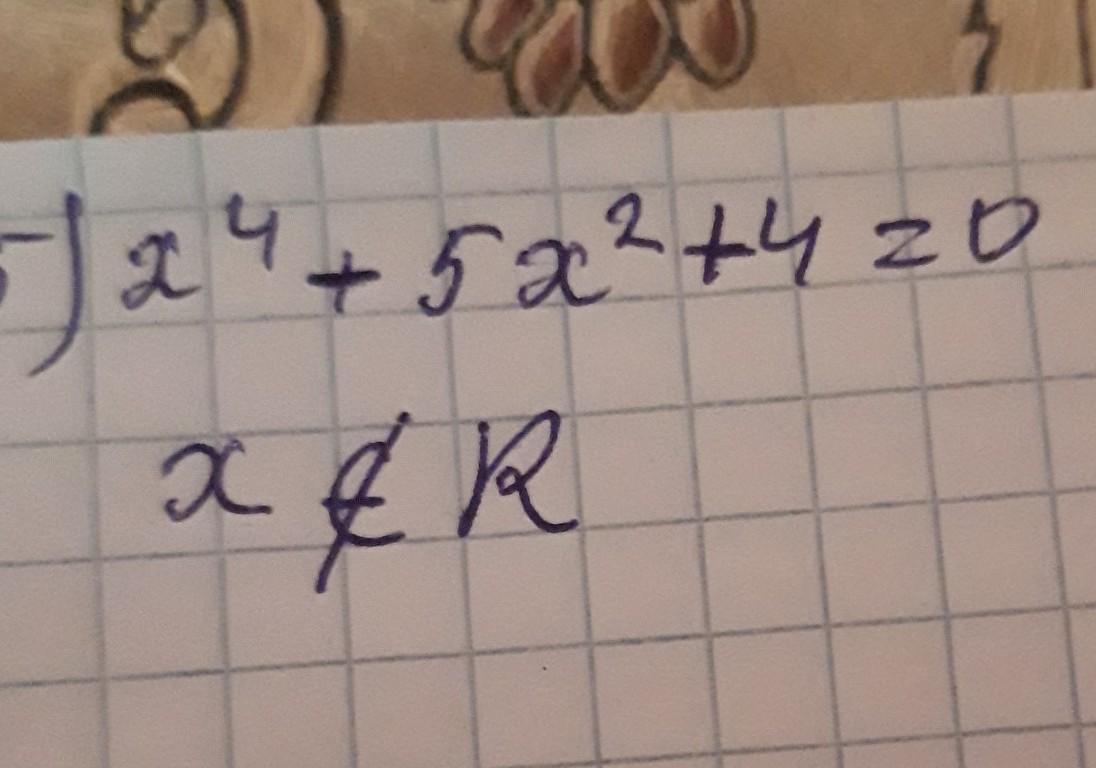 5) x⁴ + 5x² + 4 = 0
x ∉ R